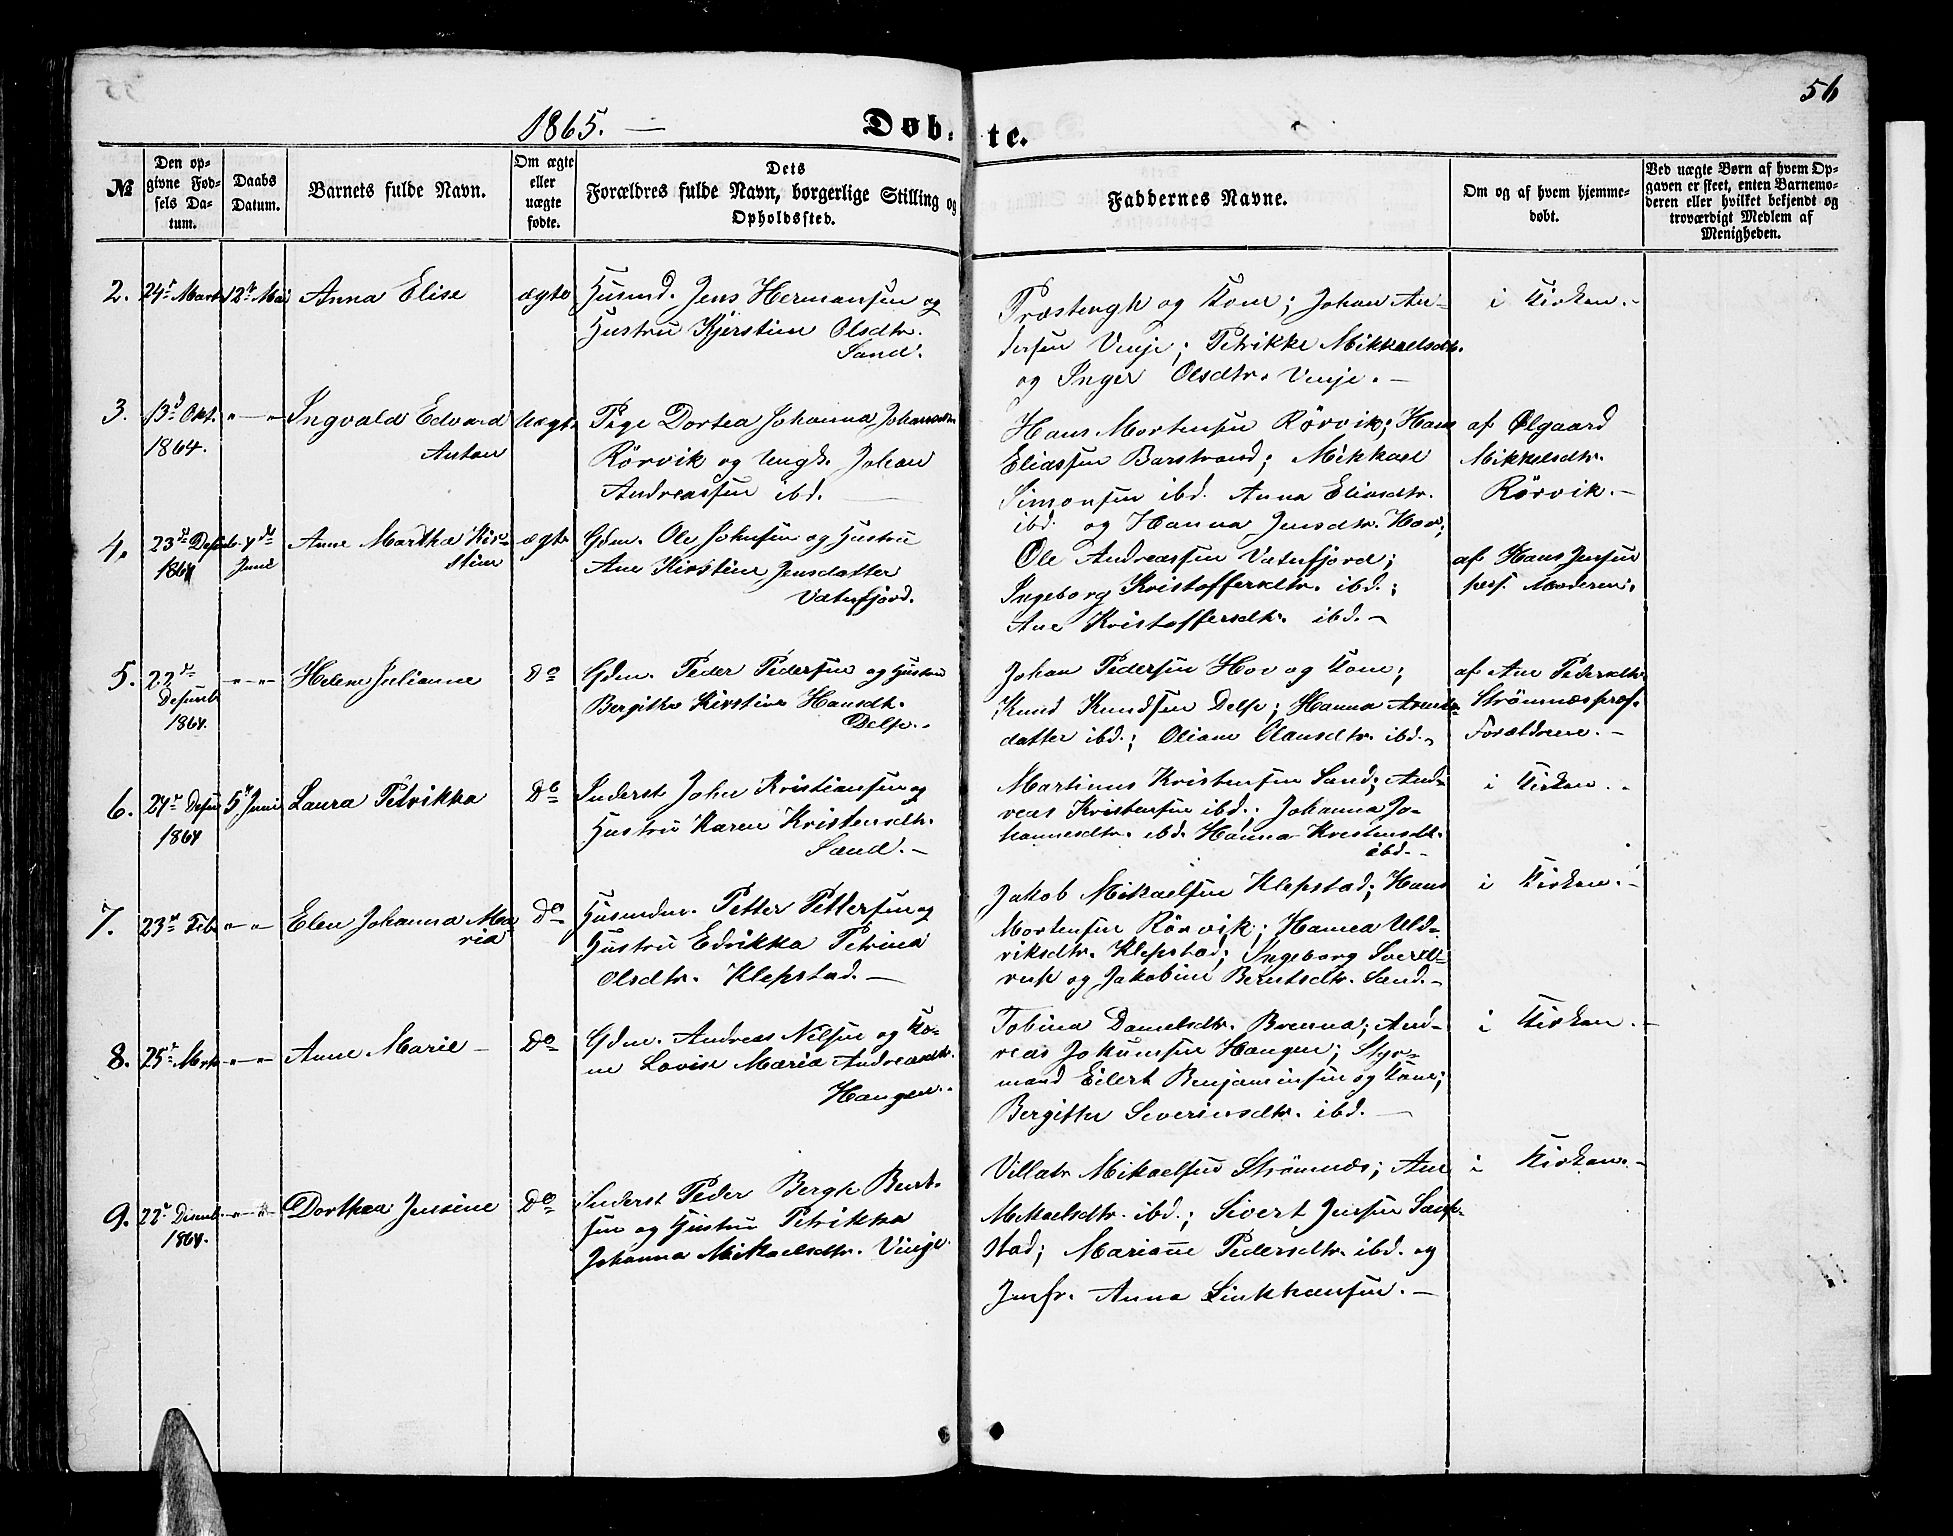 56
1865. — Døbte.
№
Den opgivne Fødsels Datum.
Daabs Datum.
Barnets fulde Navn.
Om ægte eller uægte fødte.
Dets Forældres fulde Navn, borgerlige Stilling og Opholdssted.
Faddernes Navne.
Om og af hvem hjemmedøbt.
Ved uægte Børn af hvem Opgaven er skeet, enten Barnemoderen eller hvilket bekjendt og troværdigt Medlem af Menigheden.
2. 24de Marts 12te Mai Anna Elise ægte
Husmd. Jens Hermansen og
Hustru Kjerstine Olsdtr.
Sand.
og Kone; Johan An-
dersen Venje; Petrikke Mikkaelsdtr.
og Inger Olsdtr. Venje. —
i Kirken. —
3. 13de Okt. 1864. " — " Ingvald Edvard
Anton
Uægte
Pige Dortea Johanna Johansdtr
Rörvik og Ungk. Johan
Andreassen ibd. —
Hans Mortensen Rörvik; Hans
Eliassen Barstrand; Mikkael
Simonsen ibd. Anna Eliasdtr.
ibd. og Hanna Jensdtr. Hov;
af Olgaard
Mikkelsdtr.
Rörvik. —
4. 23de Desemb. 1864 4de Juni Anne Martha Kir-
stine
ægte
Gdm. Ole Johnsen og Hustru
Ane Kirstine Jensdatter
Vatnfjord.
Ole Andreassen Vatnfjord;
Ingeborg Kristoffersdtr. ibd.;
Ane Kristoffersdtr. ibd. —
af Hans Jensen
Moderen.
5. 22de Desemb. 1864. " — " Helene Julianne Do
Gdm. Peder Pedersen og Hustru
Bergithe Kirstine Hansdtr.
Delp. —
Johan Pedersen Hov og Kone;
Knud Knudsen Delp; Hanna Arnts-
datter ibd.; Oliane Clausdtr. ibd. —
af Ane Pedersdtr
Strömnes
Forældrene. —
6. 27de Desem 1864 5te Juni Laura Petrikka Do
Inderst John Kristiansen og
Hustru Karen Kristensdtr.
Sand. —
Martinus Kristensen Sand; And-
reas Kristensen ibd.; Johanna Jo-
hannesdtr. ibd. Hanna Kristensdtr.
ibd. —
i Kirken. —
7. 23de Feb " — " Elen Johanna Ma-
ria
Do
Husmdm. Petter Pettersen og
Hustru Edrikka Petrina
Olsdtr. Klepstad. —
Jakob Mikaelsen Klepstad; Hans
Mortensen Rörvik; Hanna Uld-
riksdtr. Klepstad; Ingeborg
og Jakobine Berntsdtr. Sand. —
i Kirken. —
8. 25de Mrts " — " Anne Marie — Do
Gdm. Andreas Nilsen og Ko-
ne Lovise Maria Andreasdtr.
Haugen. —
Tobina Danielsdtr. Brenna; And-
reas Jokumsen Haugen; Styr-
mand Eilert Benjaminsen og Kone;
Bergitte Severinsdtr. ibd. —
i Kirken. —
9. 22de Disemb. 1864. " — " Dorthea Jensine Do
Inderst Peder Bergh Bent-
sen og Hustru Petrikka
Johanna Mikaelsdtr. Vinje.
Mikaelsen Strömnes; Ane
Mikaelsdtr. ibd.; Sivert Jensen
stad; Marianne Pedersdtr. ibd. og
Jmfr. Anna Linkhausen. —
i Kirken. —